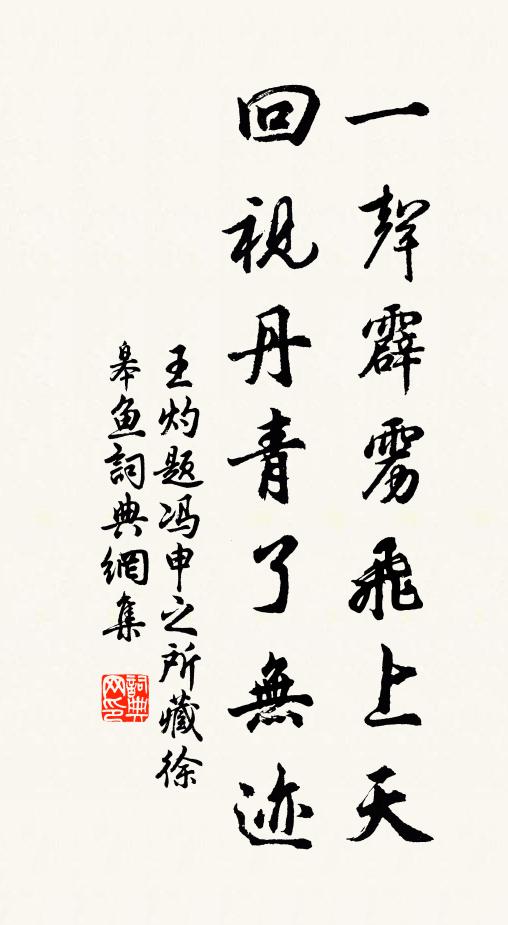 一聲霹雳飛上天
回視丹青了無迹
王灼题冯申之所藏徐
皋鱼詞典網集
詞典网印